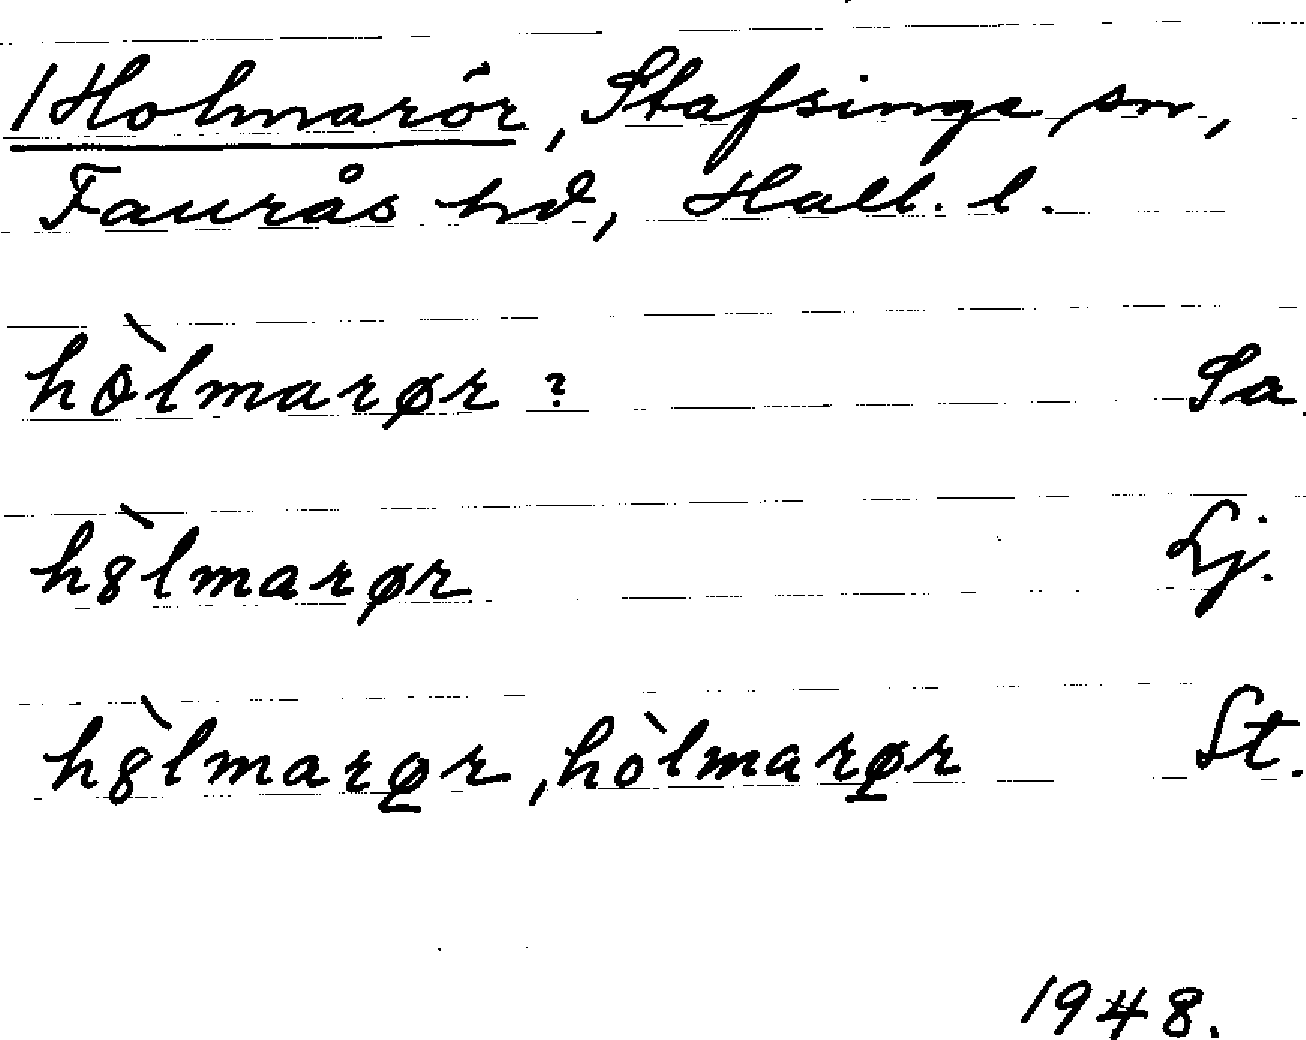 /Holmarör, Stafsinge sn,
Faurås hd, Hall. l.
hòlmarør ? Sa.
hȣ̀lmarør Lj.
hȣ̀lmarø̱r, hòlmarø̱r St.
1948.